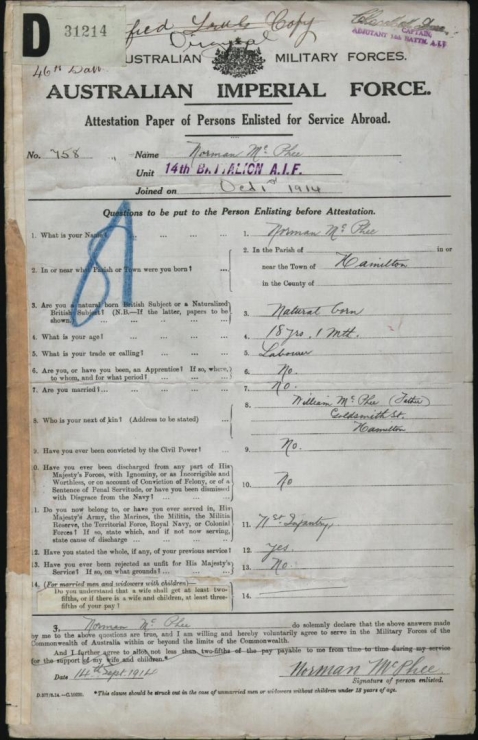 D 31214
Copy
CAPTAIN,
ADJUTANT 14th BATTN. A.I.F.
AUSTRALIAN MILITARY FORCES.
AUSTRALIAN IMPERIAL FORCE.
Attestation Paper of Persons Enlisted for Service Abroad.
No. 758 Name Norman McPhee
Unit 14th BATTALION A.I.F.
Joined on Oct 1st 1914
Questions to be put to the Person Enlisting before Attestation.
1. What is your Name? ... ... ... ... 1. Norman McPhee
2. In or near what Parish or Town were you born? ... 2. In the Parish of in or
near the Town of Hamilton
in the County of
3. Are you a natural born British Subject or a Naturalized
British Subject? (N.B.—If the latter, papers to be
shown. ... 3. Natural born
4. What is your age? ... ... ... ... 4. 18 yrs. 1 Mth.
5. What is your trade or calling? ... ... ... 5. Labourer
6. Are you, or have you been, an Apprentice? If so, where,
to whom, and for what period? ... ... 6. No.
7. Are you married? ... ... ... ... 7. No.
8. Who is your next of kin? (Address to be stated) ... 8. William McPhee (Father)
Goldsmith St.
Hamilton
9. Have you ever been convicted by the Civil Power? ... 9. No.
0. Have you ever been discharged from any part of His
Majesty's Forces, with Ignominy, or as Incorrigible and
Worthless, or on account of Conviction of Felony, or of a
Sentence of Penal Servitude, or have you been dismissed
with Disgrace from the Navy? ... ... ... 10. No
1. Do you now belong to, or have you ever served in, His
Majesty's Army, the Marines, the Militia, the Militia
Reserve, the Territorial Force, Royal Navy, or Colonial
Forces? If so, state which, and if not now serving,
state cause of discharge ... ... ... 11. Infantry
2. Have you stated the whole, if any, of your previous service? 12. Yes.
3. Have you ever been rejected as unfit for His Majesty's
Service? If so, on what grounds? ... ... 13. No.
4. (For married men and widowers with children)—
Do you understand that a wife shall get at least two-
fifths, or if there is a wife and children, at least three-
fifths of your pay? ... ... ... 14.
I, Norman McPhee do solemnly declare that the above answers made
by me to the above questions are true, and I am willing and hereby voluntarily agree to serve in the Military Forces of the
Commonwealth of Australia within or beyond the limits of the Commonwealth.
And I further agree to allot not less than two-fifths of the pay payable to me from time to time during my service
for the support of my wife and children.*
Date 14th Sept. 1914 Norman McPhee
Signature of person enlisted.
*This clause should be struck out in the case of unmarried men or widowers without children under 18 years of age.